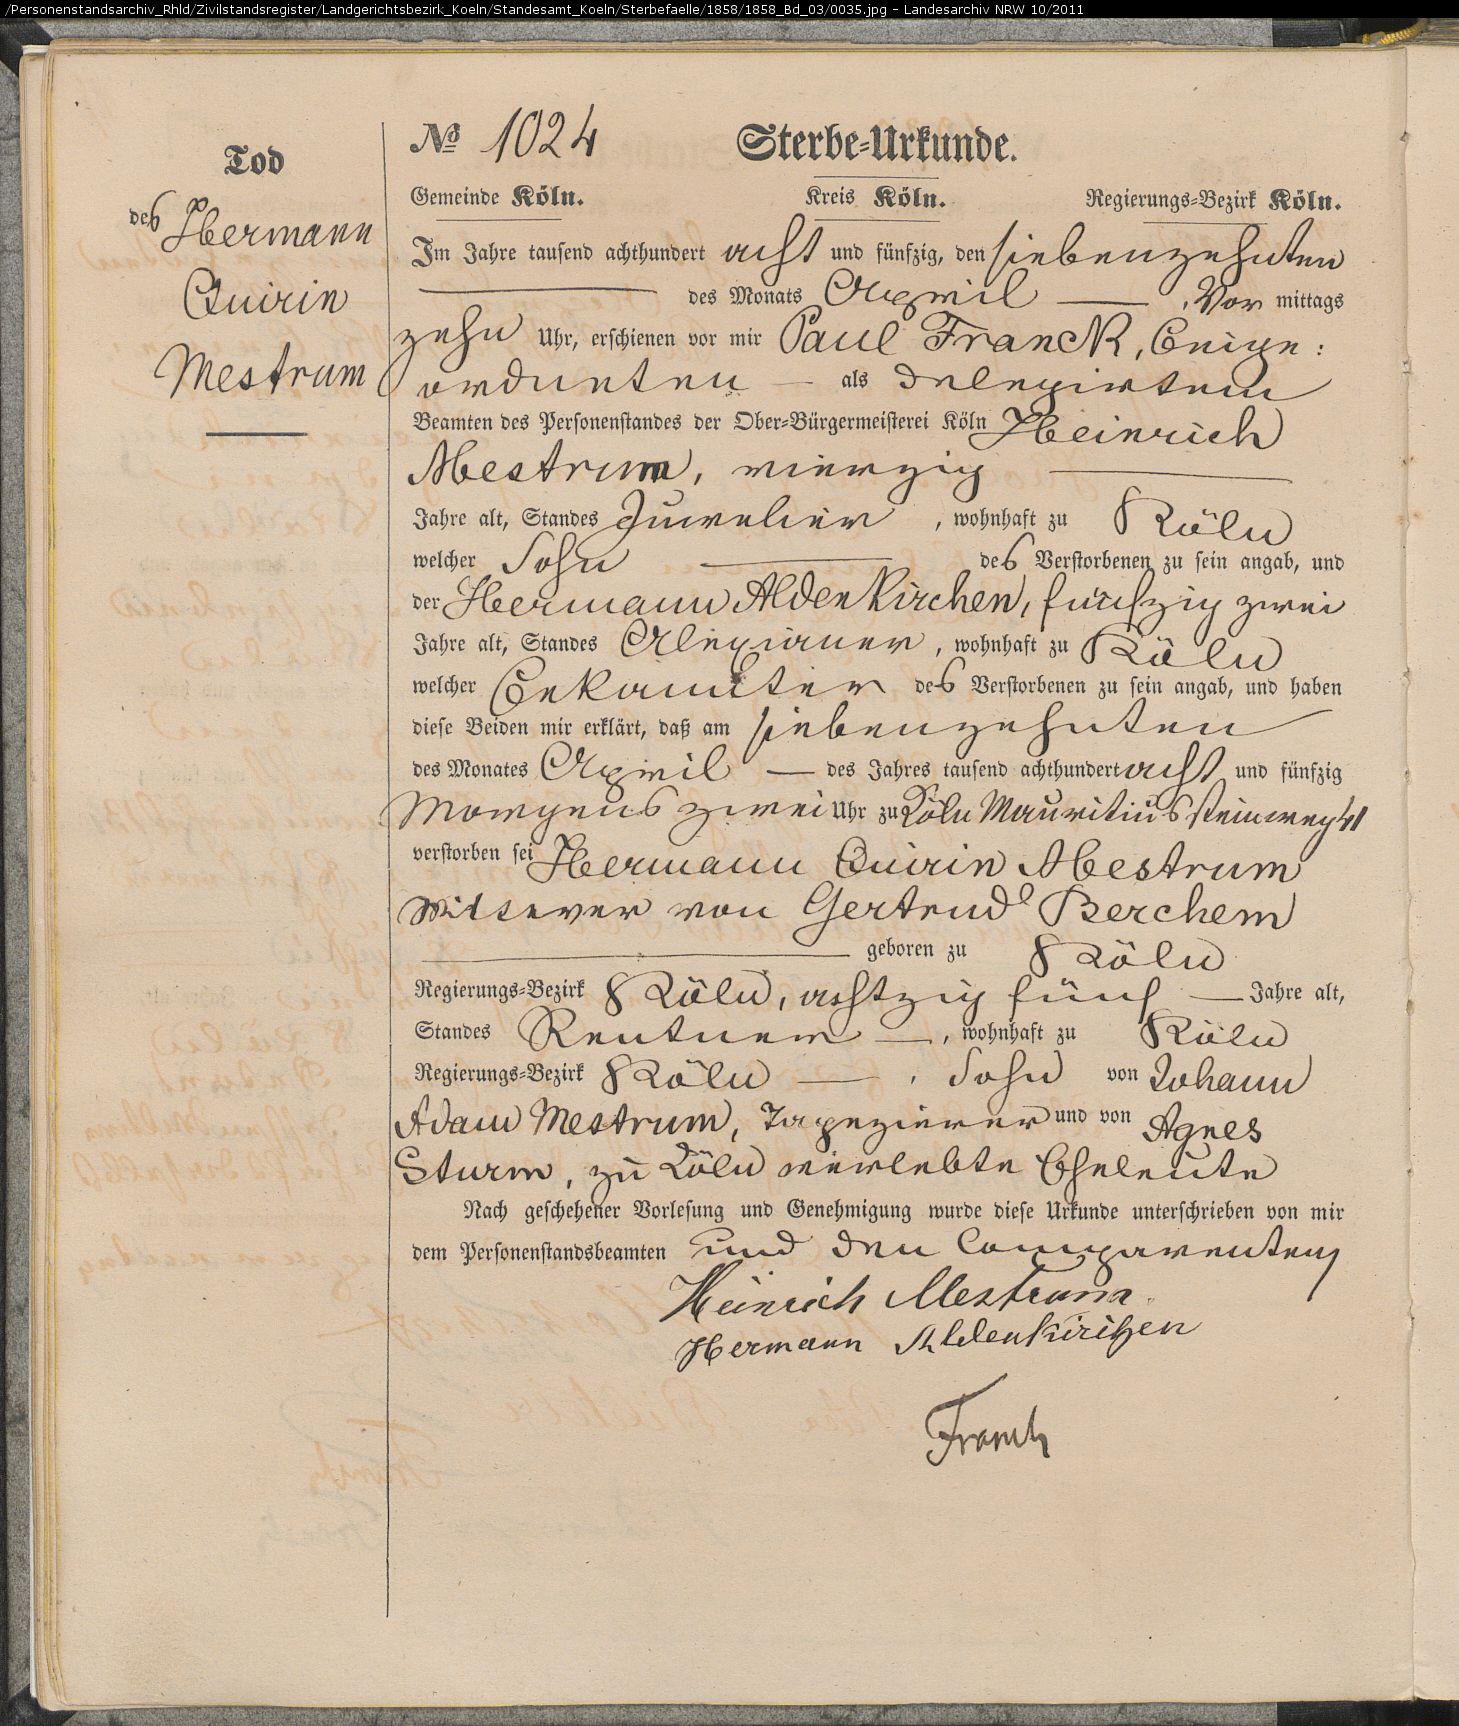 /Personenstandsarchiv_Rhld/Zivilstandsregister/Landgerichtsbezirk_Koeln/Standesamt_Koeln/Sterbefaelle/1858/1858_Bd_03/0035.jpg - Landesarchiv NRW 10/2011
Tod
des Hermann
Quirin
Mestrum
No 1024 Sterbe-Urkunde.
Gemeinde Köln. Kreis Köln. Regierungs-Bezirk Köln.
Im Jahre tausend achthundert acht und fünfzig, den siebenzehnten
des Monats April, Vor mittags
zehn Uhr, erschienen vor mir Paul Franck, Beige:
ordneten als delegirtem
Beamten des Personenstandes der Ober-Bürgermeisterei Köln Heinrich
Mestrum, vierzig
Jahre alt, Standes Juwelier, wohnhaft zu Köln
welcher Sohn des Verstorbenen zu sein angab, und
der Hermann Aldenkirchen, fünfzig zwei
Jahre alt, Standes Alexianer, wohnhaft zu Köln
welcher Bekannter des Verstorbenen zu sein angab, und haben
diese Beiden mir erklärt, daß am siebenzehnten
des Monates April des Jahres tausend achthundert acht und fünfzig
Morgens zwei Uhr zu Köln Mauritiussteinweg 41
verstorben sei Hermann Quirin Mestrum
Wittwer von Gertrud Berchem
geboren zu Köln
Regierungs-Bezirk Köln, achtzig fünf Jahre alt,
Standes Rentner, wohnhaft zu Köln
Regierungs-Bezirk Köln, Sohn von Johann
Adam Mestrum, Tapezierer und von Agnes
Sturm, zu Köln verlebte Eheleute
Nach geschehener Vorlesung und Genehmigung wurde diese Urkunde unterschrieben von mir
dem Personenstandsbeamten und den Comparenten
Heinrich Mestrum.
Hermann Aldenkirchen
Franck